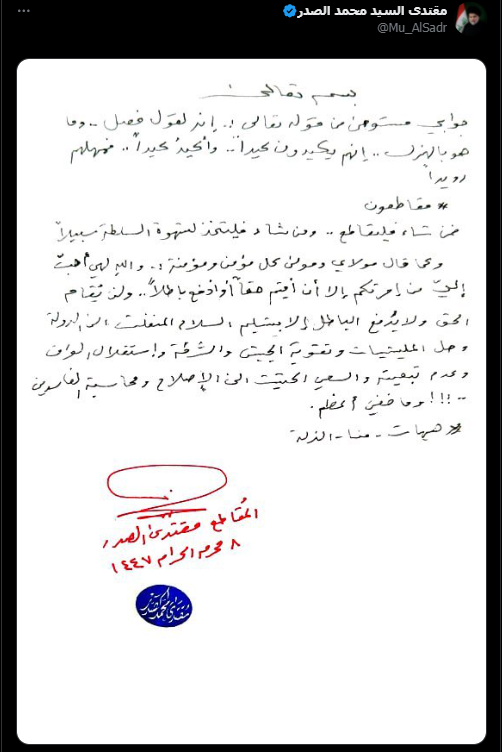 مقتدى السيد محمد الصدر
@Mu_AlSadr
بسمه تعالى
جوابي مستوحى من قوله تعالى :. إنه لقول فصل .. وما
هو بالهزل .. إنهم يكيدون كيداً .. وأكيدُ كيداً .. فمهلهم
رويداً
# مقاطعون
فمن شاء فليقاطع .. ومن شاء فليتخذ لشهوة السلطة سبيلاً
وكما قال مولاي ومولى كل مؤمن ومؤمنة :. والله لهي أحبّ
إليّ من إمرتكم إلا أن أقيم حقاً أو أدفع باطلاً .. ولن يُقام
الحق ولا يُدفع الباطل إلا بتسليم السلاح المنفلت الى الدولة
وحل المليشيات وتقوية الجيش والشرطة وإستقلال العراق
وعدم تبعيته والسعي الحثيث الى الإصلاح ومحاسبة الفاسدين
..!!! وما خفي أعظم.
# هيهات - منا - الذلة
المُقاطع مقتدى الصدر
٨ محرم الحرام ١٤٤٧